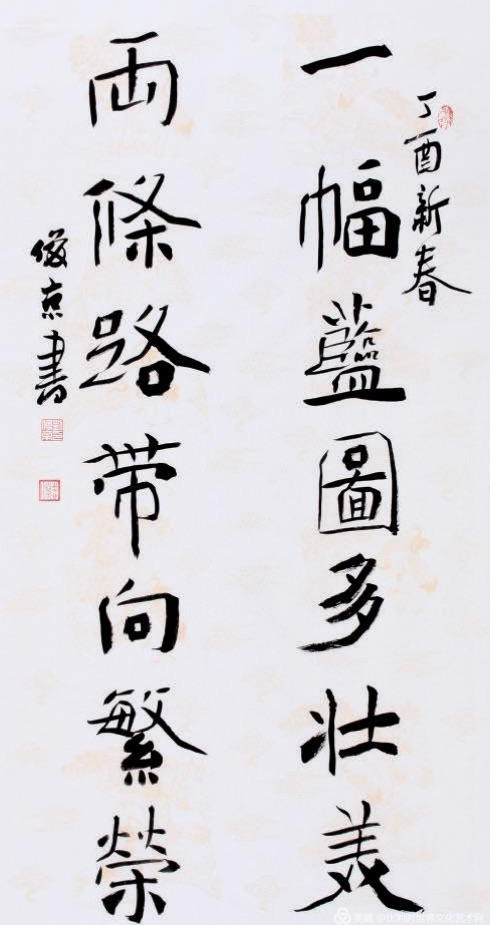 丁酉新春
一幅藍圖多壯美
両條路带向繁榮
俊京書